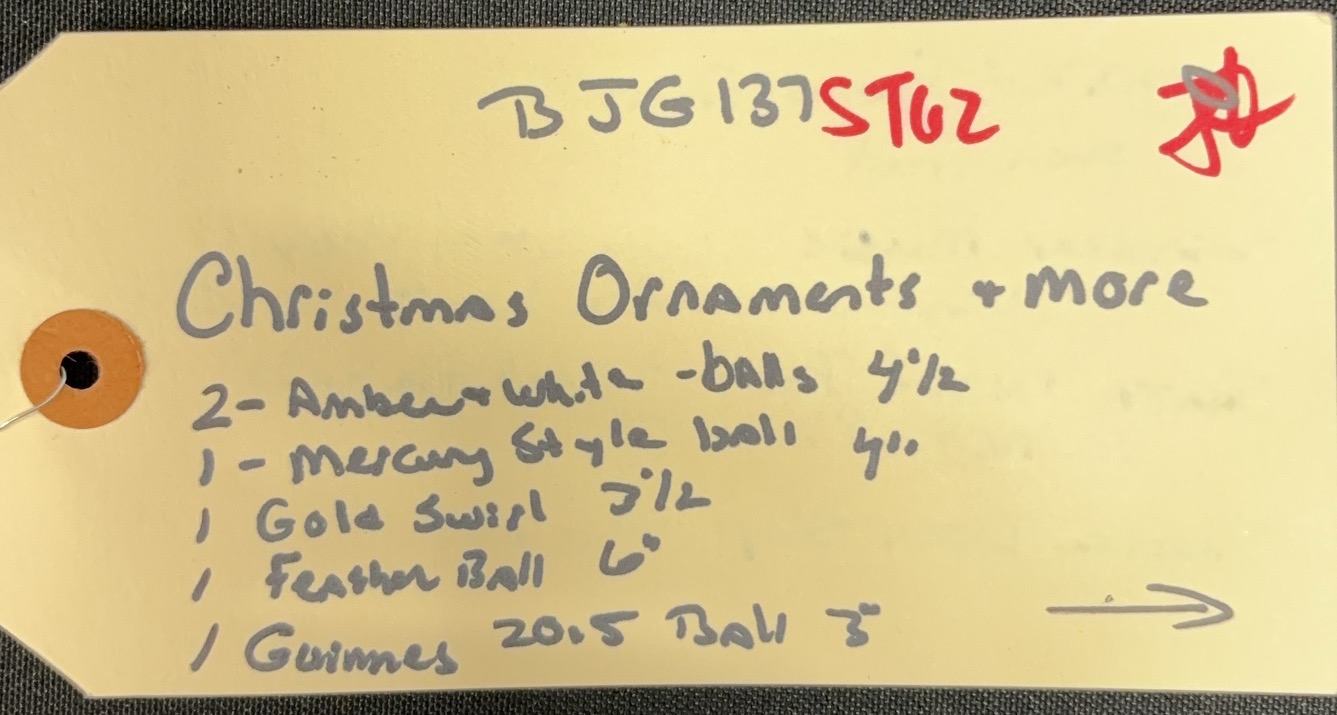 BJG137 ST62
Christmas Ornaments + more
2- Amber + white -balls 4 1/2
1 - Mercury Style ball 4"
1 Gold Swirl 3 1/2
1 Feather Ball 6"
1 Guinnes 20.5 Ball 3"